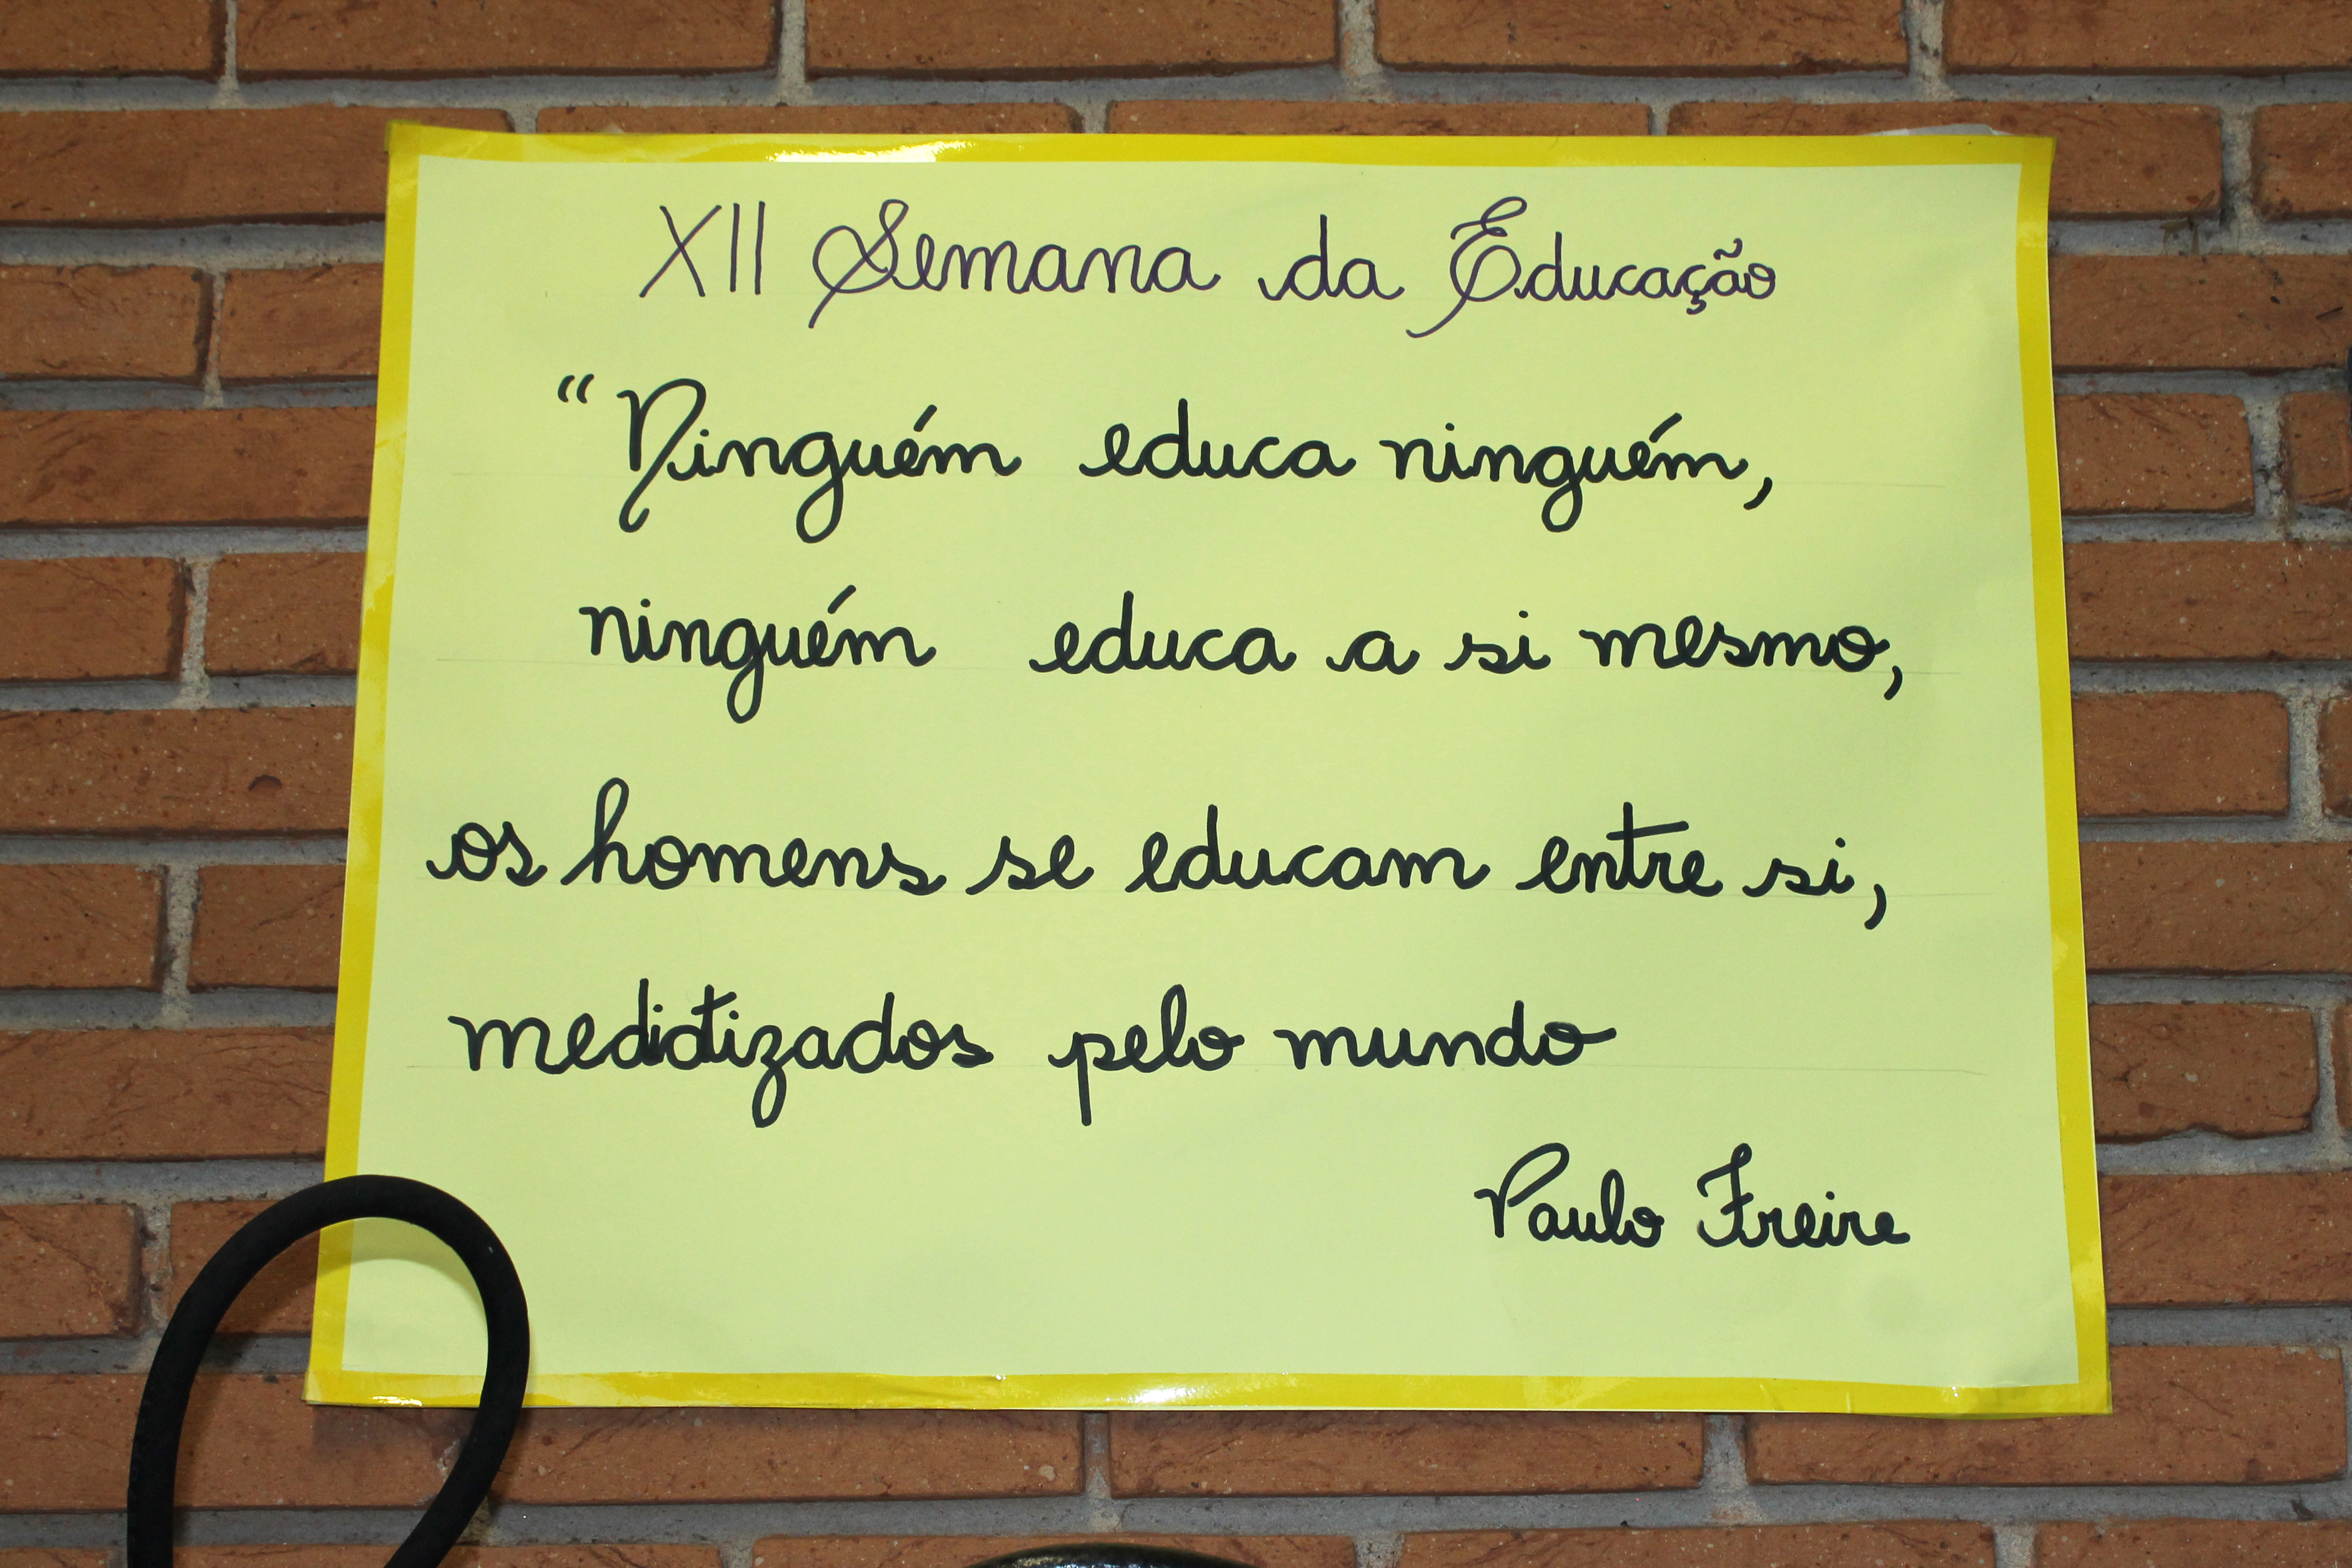 XII Semana da Educação
“Ninguém educa ninguém,
ninguém educa a si mesmo,
os homens se educam entre si,
mediatizados pelo mundo
Paulo Freire